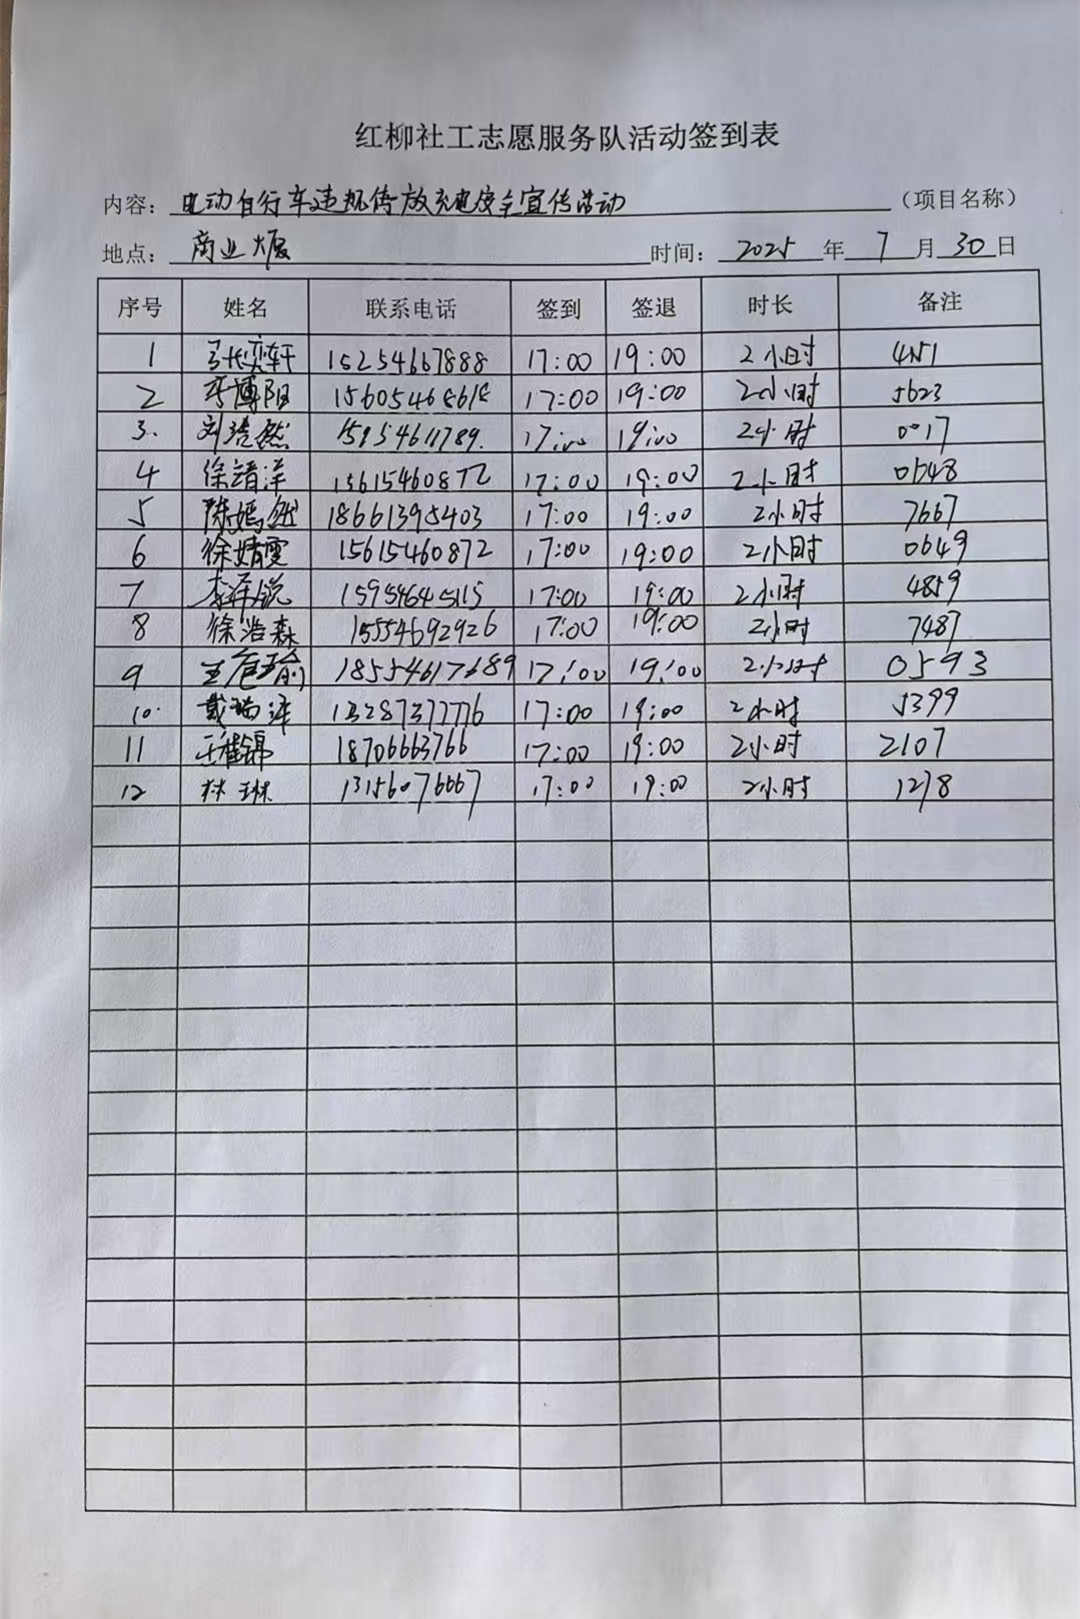 红柳社工志愿服务队活动签到表
内容：电动自行车违规停放充电安全宣传活动（项目名称）
地点：商业大厦 时间：2025年7月30日
序号 姓名 联系电话 签到 签退 时长 备注
1 张奕轩 15254667888 17:00 19:00 2小时 4151
2 李博阳 17:00 19:00 2小时 5623
3. 刘浩然 15954611789. 17:00 19:00 2小时 0017
4 徐靖洋 15615460872 17:00 19:00 2小时 0648
5 陈嫣然 18661395403 17:00 19:00 2小时 7667
6 徐婧雯 15615460872 17:00 19:00 2小时 0649
7 李泽锐 15954645115 17:00 19:00 2小时 4859
8 徐浩森 15554692926 17:00 19:00 2小时 7487
9 18554617689 17:00 19:00 2小时 0593
10. 戴瑞泽 13287377776 17:00 19:00 2小时 5399
11 18706663766 17:00 19:00 2小时 2107
12 林琳 13156076667 17:00 19:00 2小时 1278